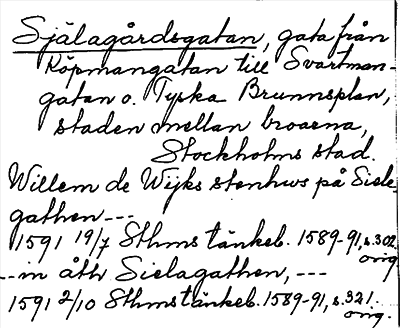 Själagårdsgatan, gata från
Köpmangatan till Svartman-
gatan o. Tyska Brunnsplan,
staden mellan broarna,
Stockholms stad.
Willem de Wijks stenhws på Siele-
gathen ---
1591 19/7 Sthms tänkeb. 1589-91, s. 302.
orig.
-- in åth Sielagathen, ---
1591 2/10 Sthms tänkeb. 1589-91, s. 321.
orig.